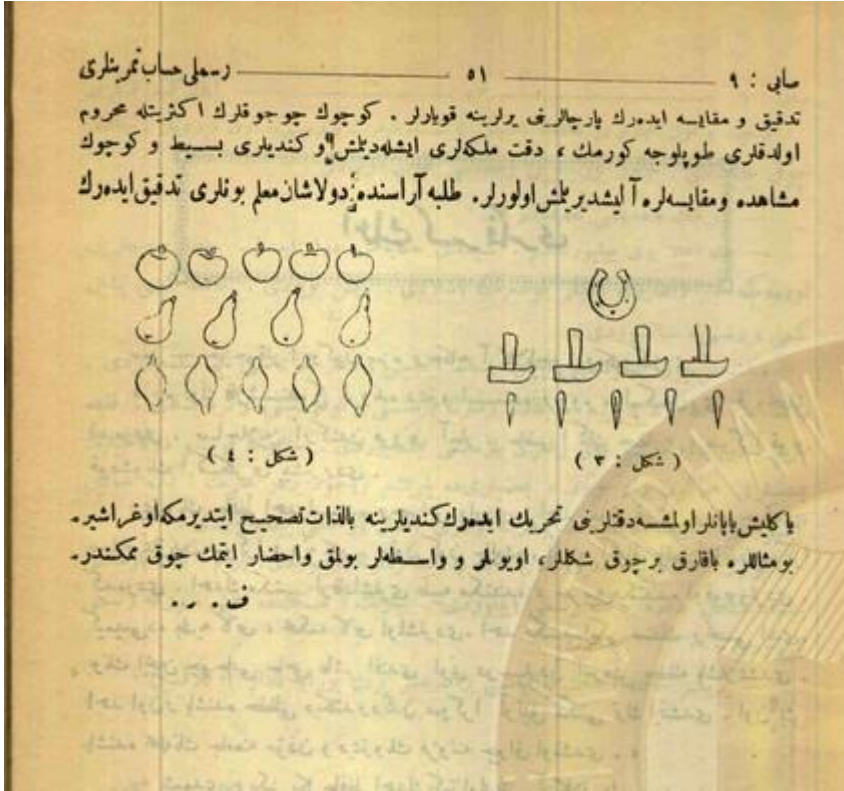 صابی : ٩ ٥١ رسملی حساب تمرینلری
تدقیق و مقایسه ایده‌رك پارچالرینی یرلرینه قویارلر . كوچوك چوجوقلرك اكثریتله محروم
اولدقلری طوپلوجه كورمك ، دقت ملكه‌لری ایشله‌دیلمش و كندیلری بسیط و كوچوك
مشاهده ومقایسه‌لره آلیشدیریلمش اولورلر. طلبه آراسنده دولاشان معلم بونلری تدقیق ایده‌رك
( شكل : ٣ )
( شكل : ٤ )
یاكلیش یاپانلر اولمشسه دقتلرینی تحریك ایده‌رك كندیلرینه بالذات تصحیح ایتدیرمكه اوغراشیر.
بومثاللره باقارق برچوق شكللر، اویونلر و واسطه‌لر بولمق واحضار ایتمك چوق ممكندر.
ف . ر .